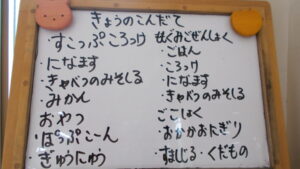 きょうのこんだて
・すこっぷころっけ
・になます
・きゃべつのみそしる
・みかん
おやつ
・ぽっぷこーん
・ぎゅうにゅう
せんぐみごぜんしょく
・ごはん
・ころっけ
・になます
・きゃべつのみそしる
ごごしょく
・おかかおにぎり
・すましじる・くだもの